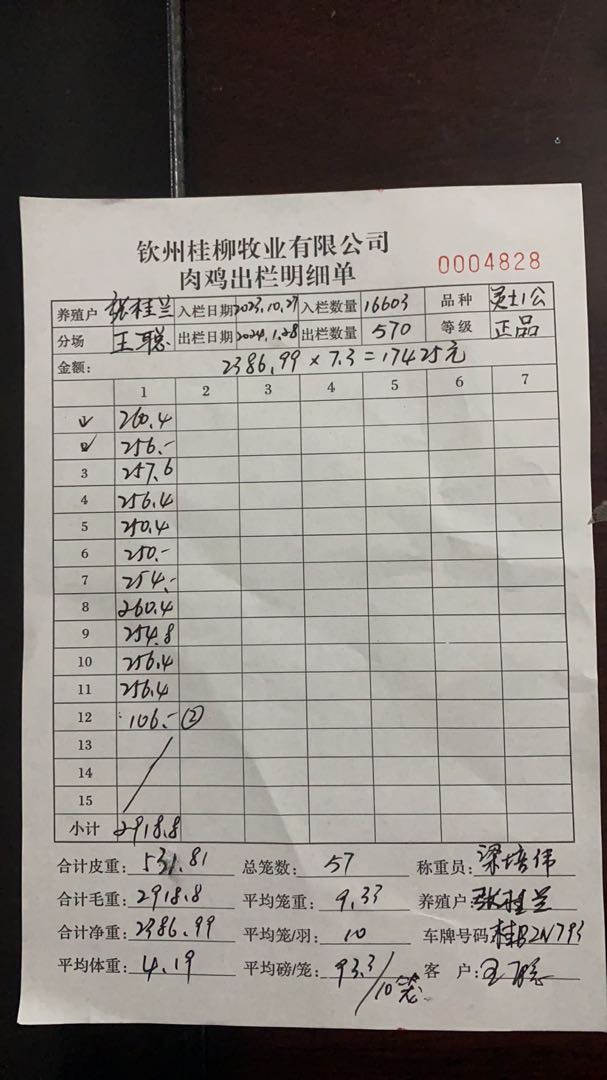 钦州桂柳牧业有限公司
肉鸡出栏明细单
0004828
养殖户 张桂兰 入栏日期 2023.10.27 入栏数量 16603 品种 公
分场 王聪 出栏日期 2024.1.28 出栏数量 570 等级 正品
金额: 2386.99 × 7.3 = 17425元
1 2 3 4 5 6 7
1 260.4
2 256.-
3 257.6
4 256.4
5 250.4
6 250.-
7 254.-
8 260.4
9 254.8
10 256.4
11 256.4
12 106.- ②
13
14
15
小计 2918.8
合计皮重: 531.81 总笼数: 57 称重员: 梁培伟
合计毛重: 2918.8 平均笼重: 9.33 养殖户 张桂兰
合计净重: 2386.99 平均笼/羽: 10 车牌号码: 桂B2N793
平均体重: 4.19 平均磅/笼: 93.3/10笼 客 户: 王聪